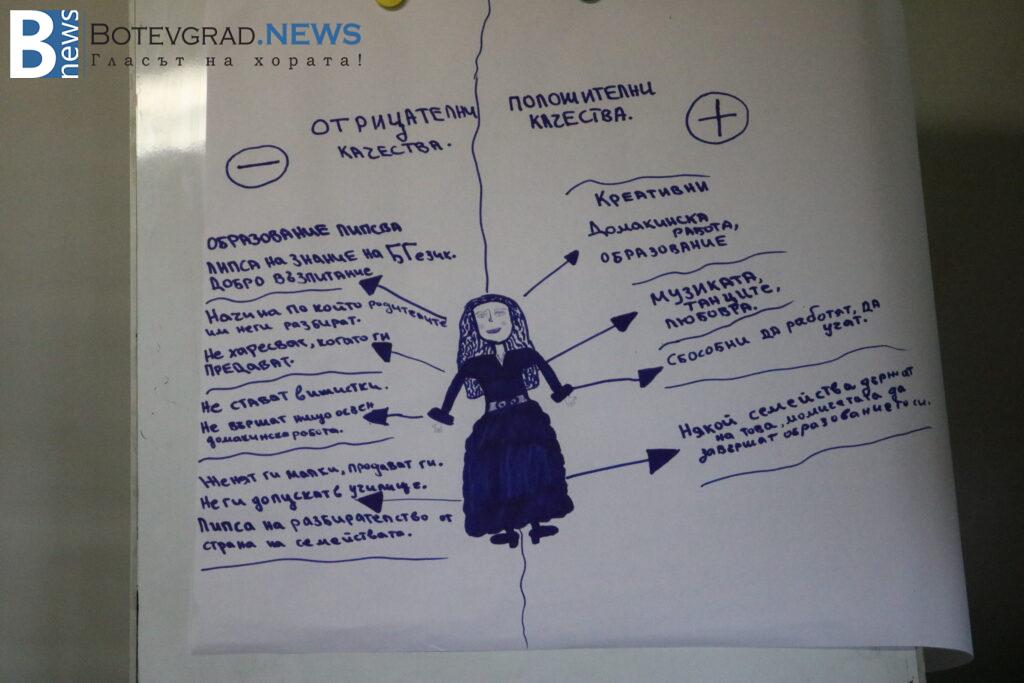 B news
BOTEVGRAD.NEWS
Гласът на хората!
ОТРИЦАТЕЛНИ
КАЧЕСТВА.
ОБРАЗОВАНИЕ ЛИПСВА
ЛИПСА НА ЗНАНИЕ НА БГ език.
ДОБРО ВЪЗПИТАНИЕ
Начина по който родителите
им неги разбират.
Не харесват, когато ги
ПРЕДАВАТ.
Не стават
Не вършат нищо освен
домакинска работа.
Женят ги малки, продават ги.
Неги допускат в училище.
Липса на разбирателство от
страна на семействата.
ПОЛОЖИТЕЛНИ
КАЧЕСТВА.
КРЕАТИВНИ
Домакинска
РАБОТА,
ОБРАЗОВАНИЕ
МУЗИКАТА,
ТАНЦИТЕ,
ЛЮБОВТА.
СПОСОБНИ ДА работят, ДА
учат.
Някой семейства държат
на това, момичетата да
завършат образованието си.